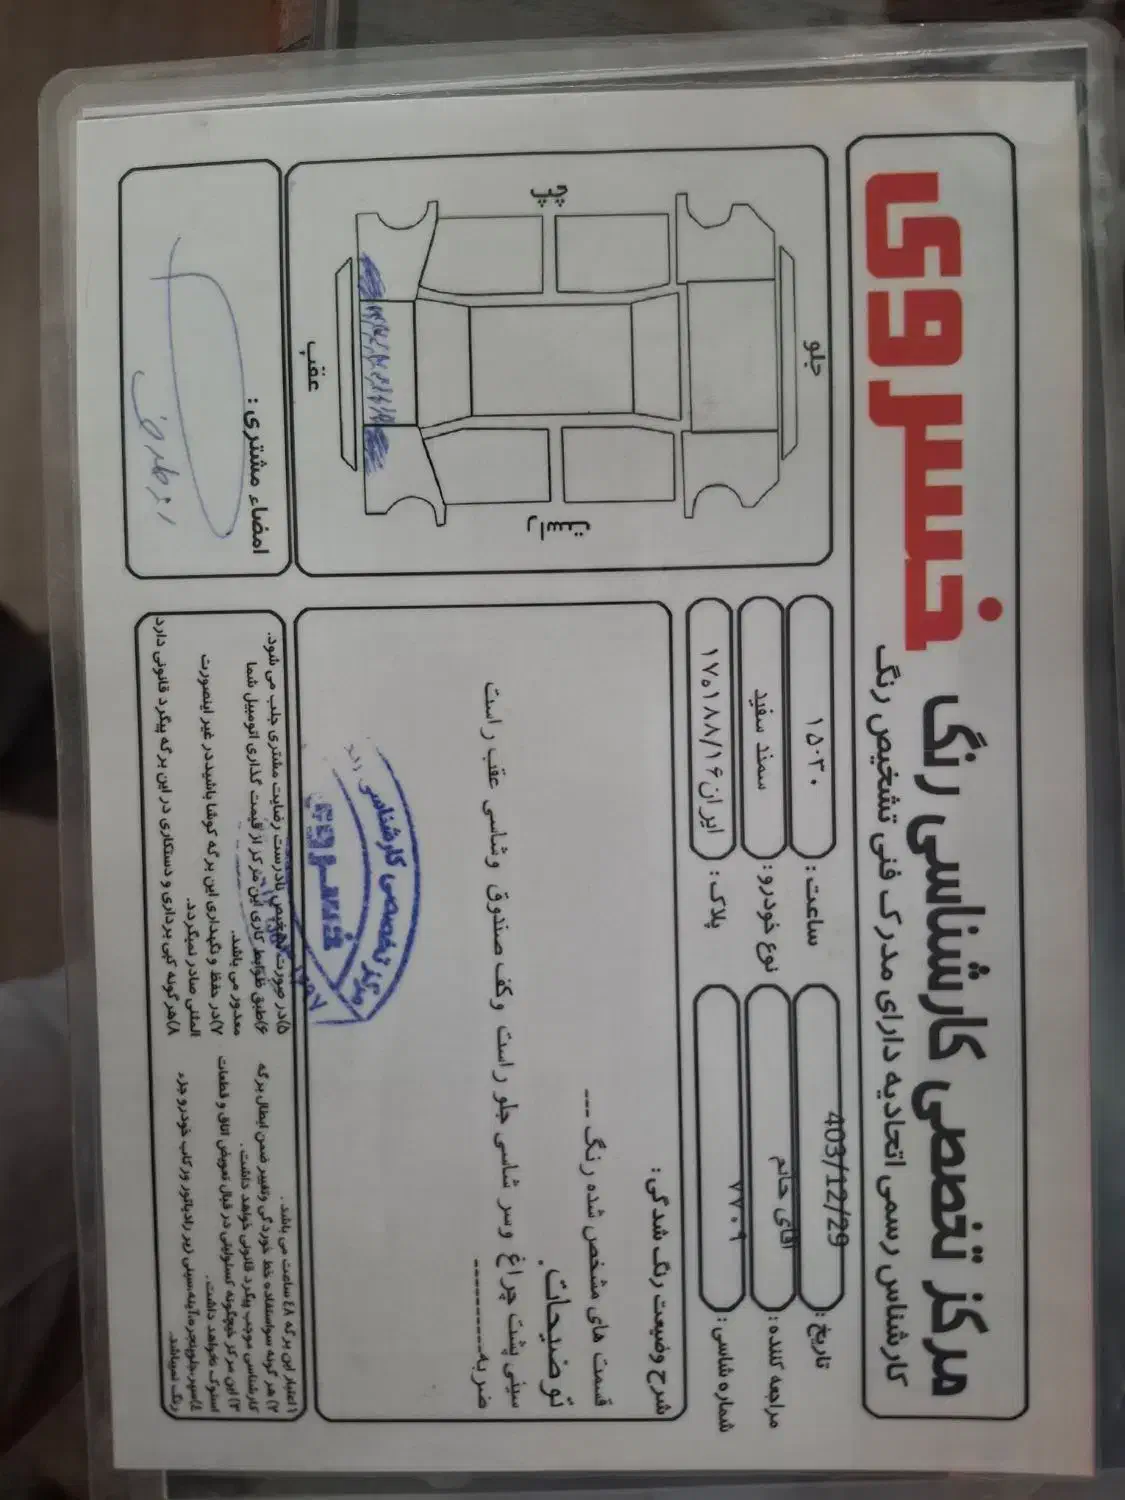 خسروی
مرکز تخصصی کارشناسی رنگ
کارشناس رسمی اتحادیه دارای مدرک فنی تشخیص رنگ
تاریخ : 403/12/29
ساعت : ۱۵:۳۰
مراجعه کننده : اقای حاتم
نوع خودرو : سمند سفید
شماره شاسی : ۷۷۰۹
پلاک : ایران۱۷۵۱۸۸/۱۶
شرح وضیعت رنگ شدگی :
قسمت های مشخص شده رنگ ---
توضیحات.
سینی پشت چراغ وسر شاسی جلو راست وکف صندوق وشاسی عقب راست
ضربه----------
مرکز تخصصی کارشناسی
خسروی
جلو
چپ
راست
عقب
۱)اعتبار این برگه ۴۸ ساعت می باشد.
۲) هر گونه سواستفاده خط خوردگی وتغییر ضمن ابطال برگه
کارشناسی موجب پیگرد قانونی خواهد داشت.
۳) این مرکز هیچگونه مسئولیتی در قبال تعویض اتاق و قطعات
استوک نخواهد داشت.
۴)سپر،جلوپنجره،آینه،سینی زیر رادیاتور ورکاب خودرو جزء
رنگ نمیباشد.
۵)در صورت تشخیص نادرست رضایت مشتری جلب می شود.
۶)طبق ظوابط کاری این مرکز از قیمت گذاری اتومبیل شما
معذور می باشد.
۷)در حفظ و نگهداری این برگه کوشا باشیددر غیر اینصورت
المثنی صادر نمیگردد.
۸)هرگونه کپی برداری و دستکاری در این برگه پیگرد قانونی دارد
امضاء مشتری :